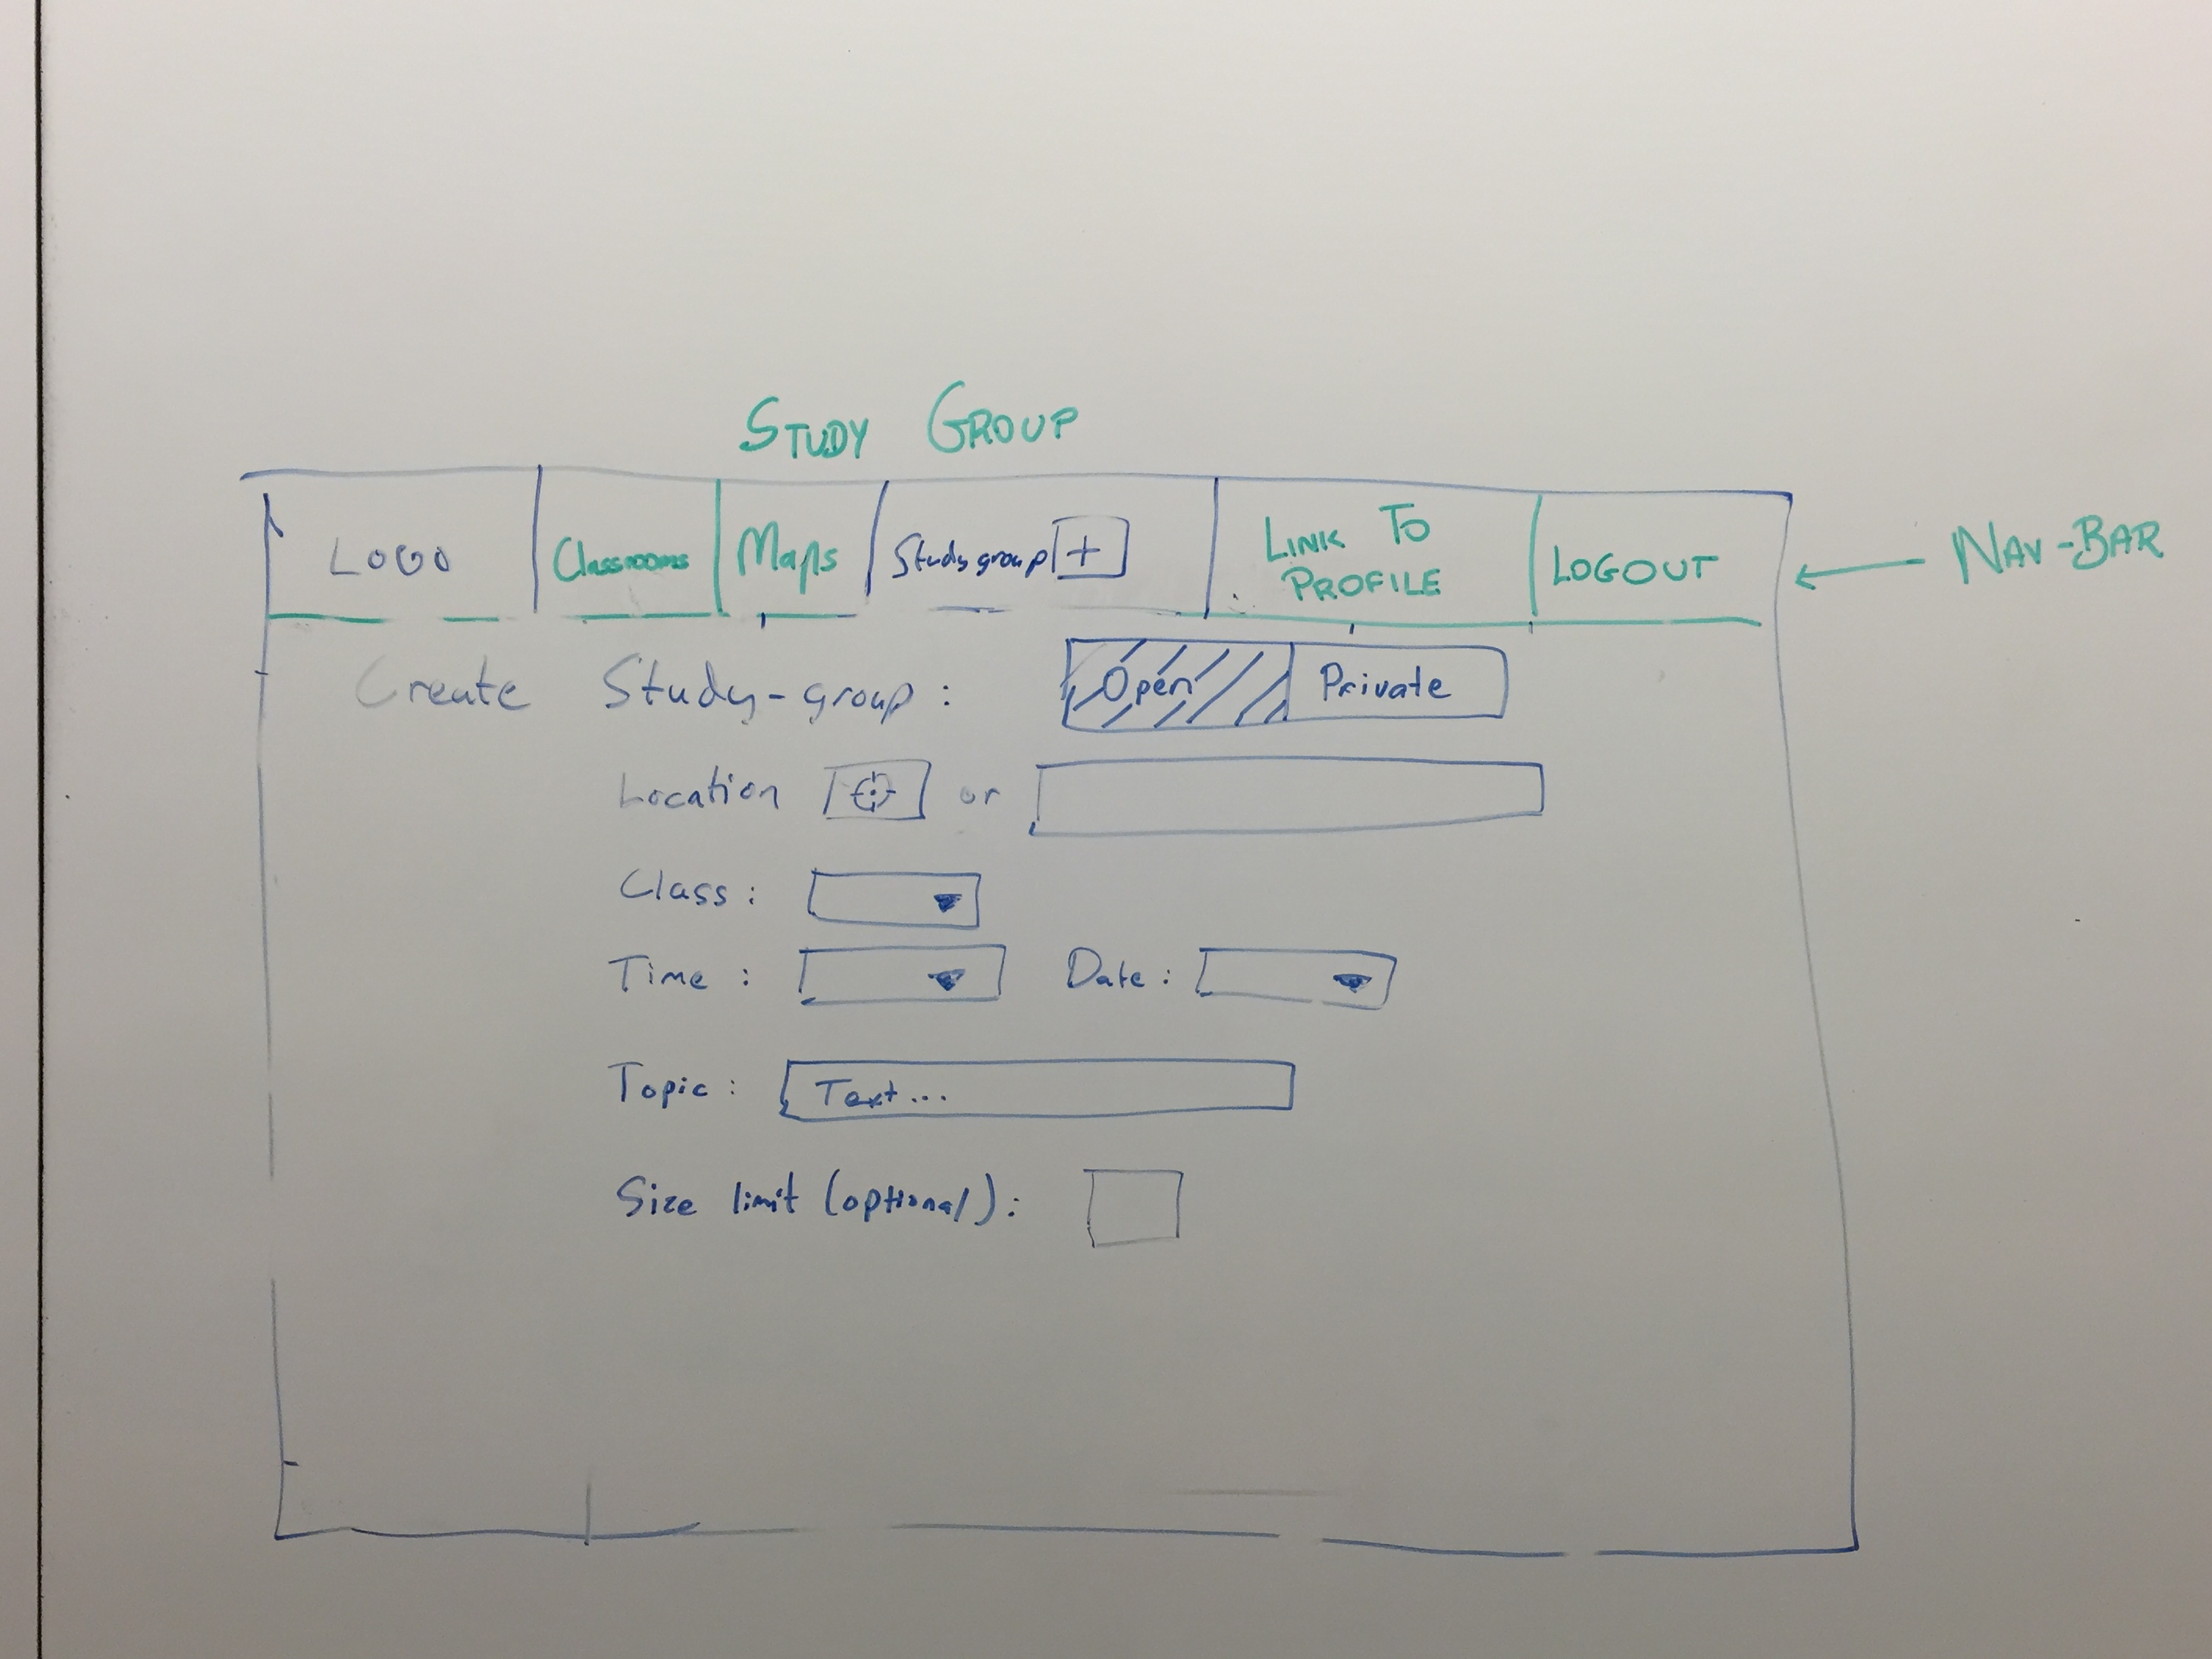 STUDY GROUP
LOGO Classrooms Maps Study group + LINK TO PROFILE LOGOUT NAV-BAR
Create Study-group: Open Private
Location or
Class:
Time: Date:
Topic: Text...
Size limit (optional):